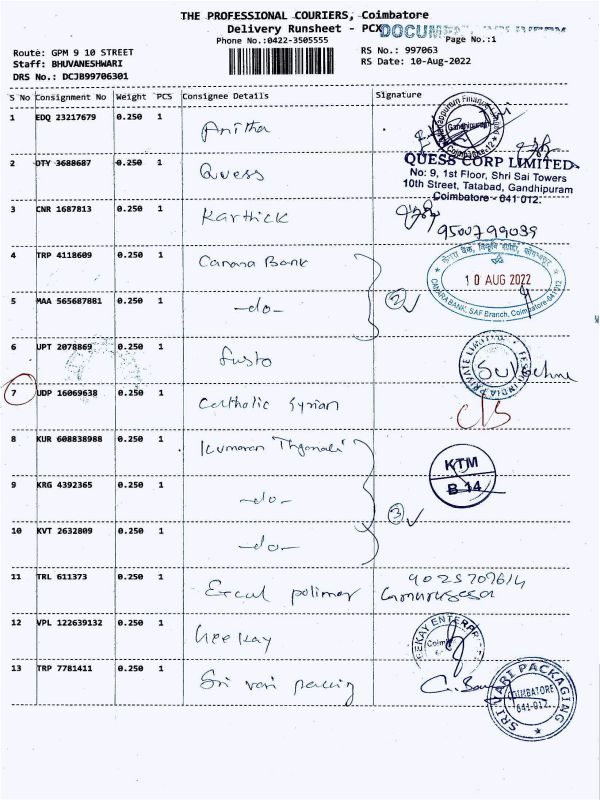 THE PROFESSIONAL COURIERS, Coimbatore
Delivery Runsheet - PCX
Phone No.:0422-3505555
Page No.:1
Route: GPM 9 10 STREET
RS No.: 997063
Staff: BHUVANESHWARI
RS Date: 10-Aug-2022
DRS No.: DCJB99706301
S No Consignment No Weight PCS Consignee Details Signature
1 EDQ 23217679 0.250 1 Anitha
Gandhipuram
2 DTY 3688687 0.250 1 Quess
QUESS CORP LIMITED
No: 9, 1st Floor, Shri Sai Towers
10th Street, Tatabad, Gandhipuram
Coimbatore - 641 012.
3 CNR 1687813 0.250 1 Karthick
9500799039
4 TRP 4118609 0.250 1 Canara Bank
10 AUG 2022
CANARA BANK, SAF Branch, Coimbatore-641012
5 MAA 565687881 0.250 1 -do-
2
6 UPT 2078869 0.250 1 Susto
7 UDP 16069638 0.250 1 Catholic Syrian
8 KUR 608838988 0.250 1 Kumaran
KTM
B 14
9 KRG 4392365 0.250 1 -do-
3
10 KVT 2632809 0.250 1 -do-
11 TRL 611373 0.250 1 Excel polimer
9025707614
12 VPL 122639132 0.250 1 Geekay
13 TRP 7781411 0.250 1 Sri vari packing
SRI VARI PACKAGING
COIMBATORE
641-012